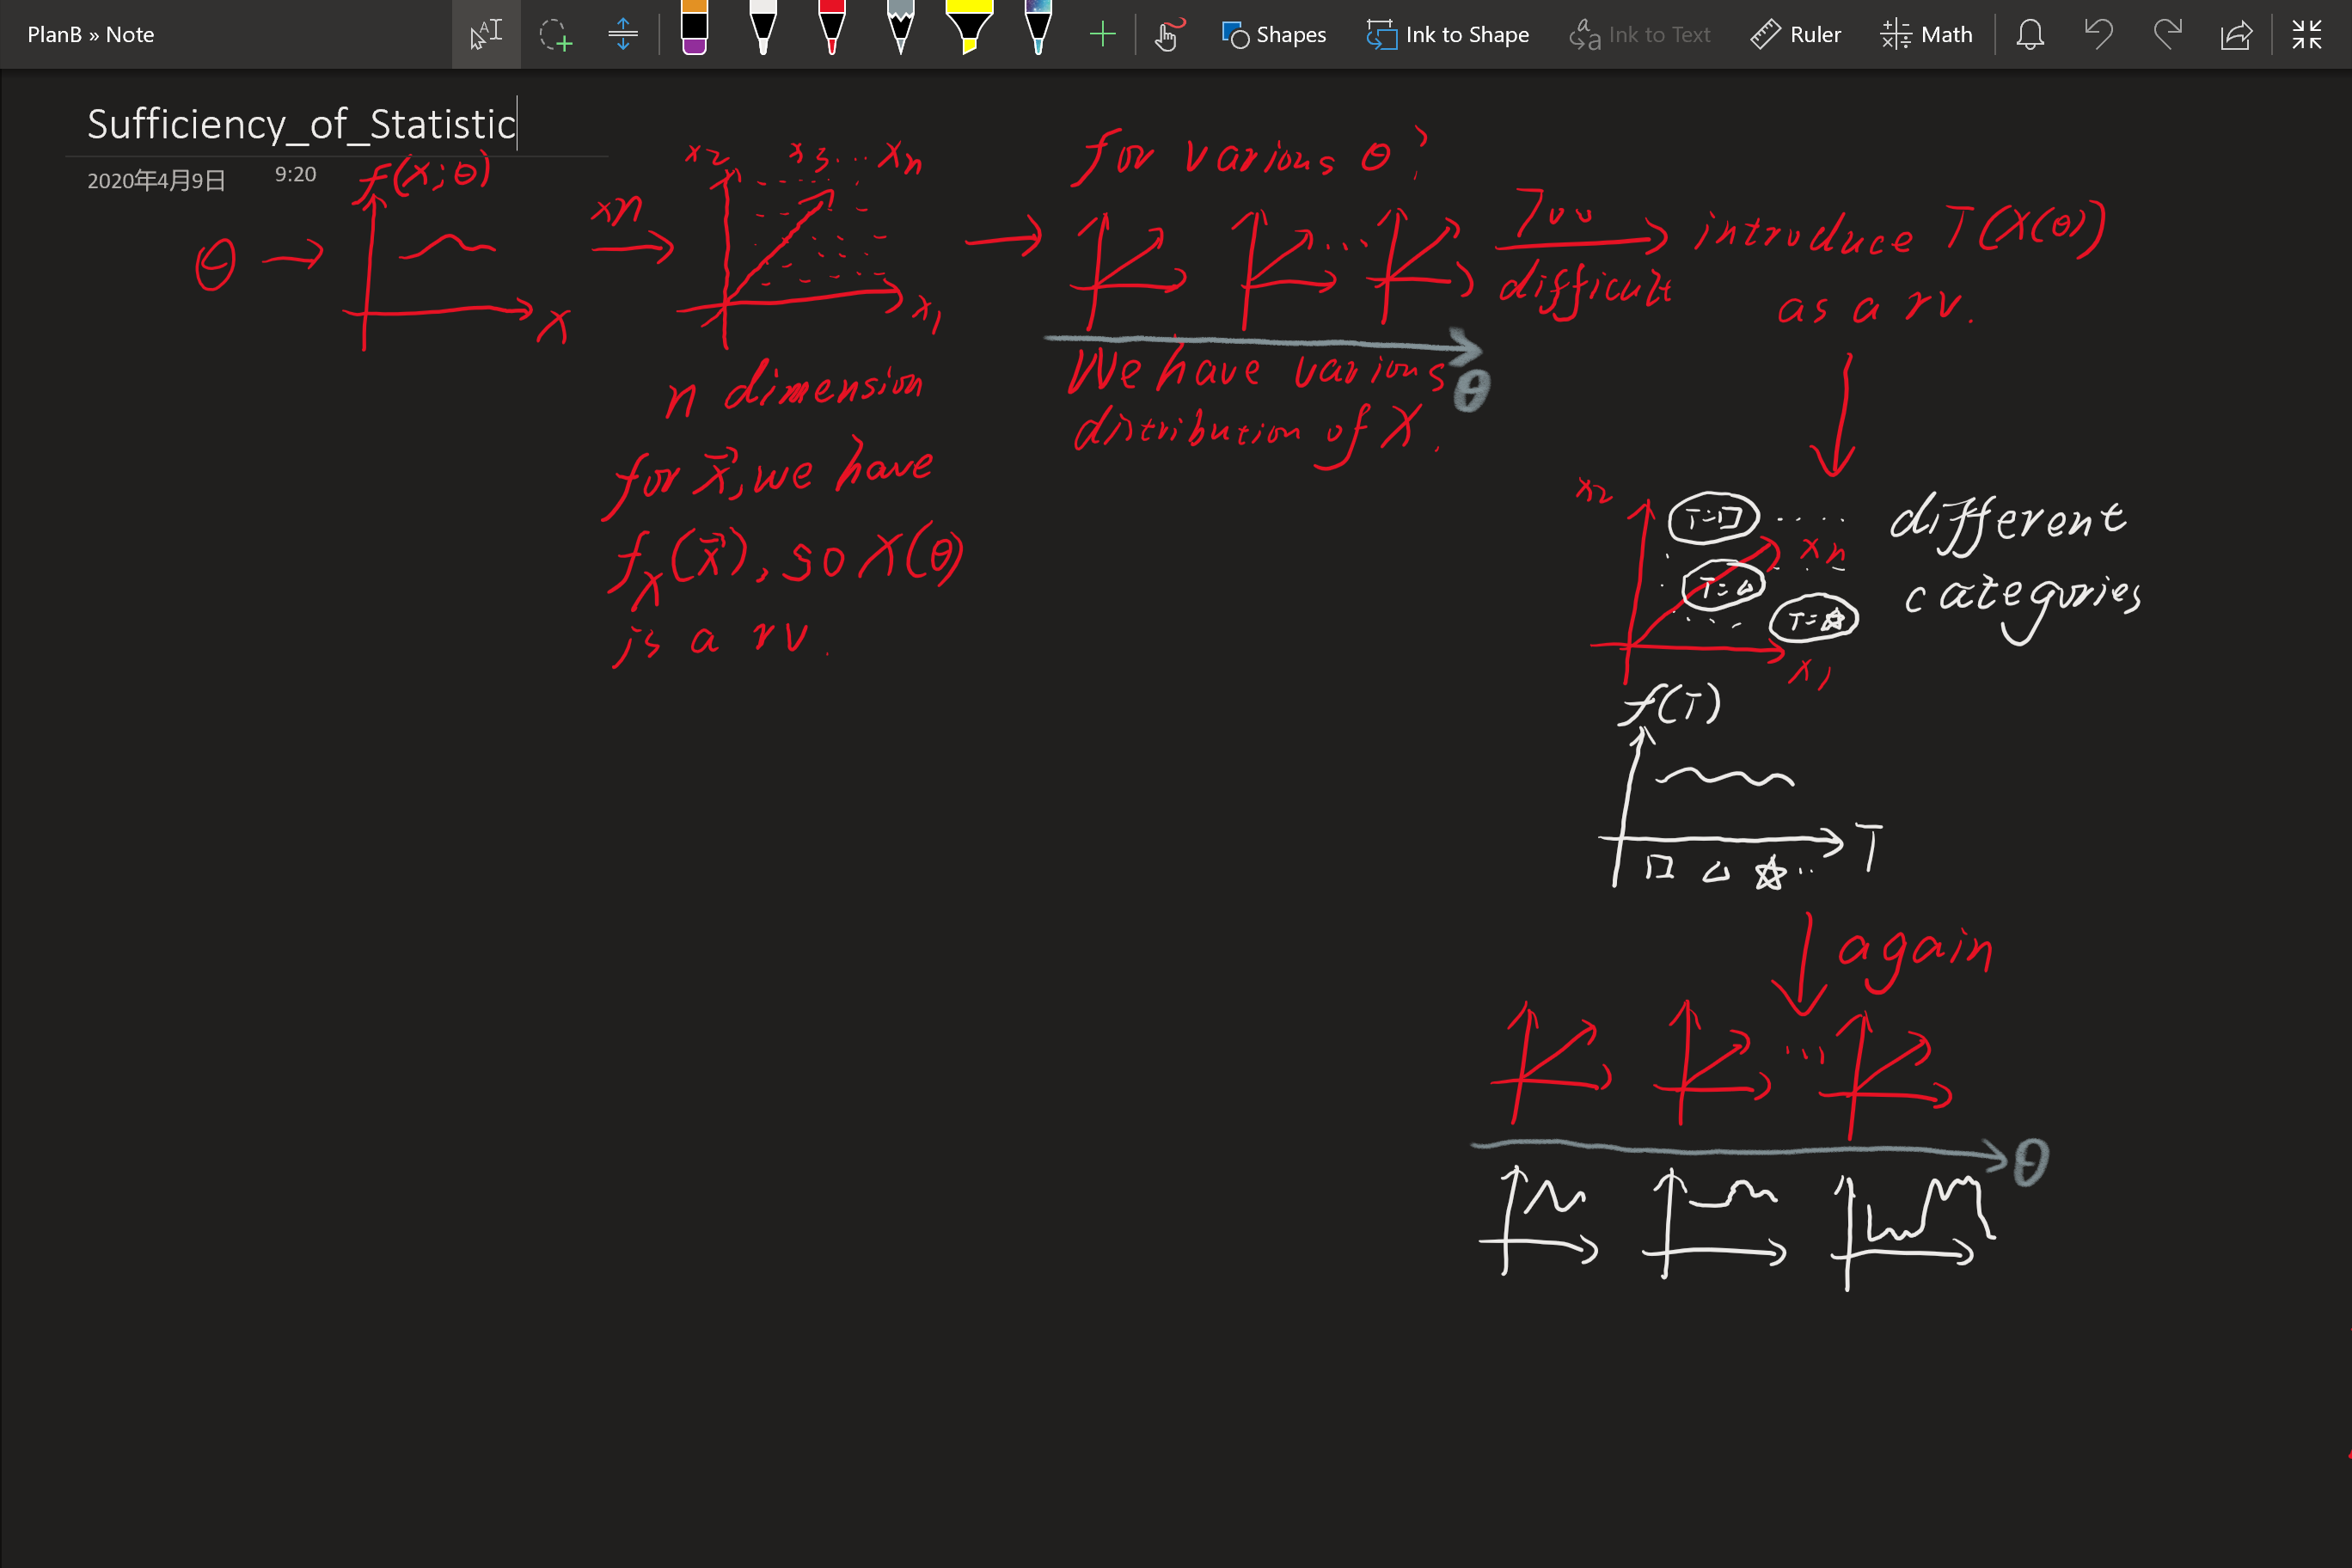 PlanB » Note
Shapes
Ink to Shape
Ink to Text
Ruler
Math
Sufficiency_of_Statistic
2020年4月9日 9:20
θ → f(x;θ)
x
xn
x2 x3 ... xn
x1
n dimension
for x⃗, we have
f_X(x⃗), so X(θ)
is a rv.
for various θ:
We have various
distribution of X.
θ
Too
difficult
introduce T(X(θ))
as a rv.
x2
T=□
T=△
T=☆
xn
x1
different
categories
f(T)
T
□ △ ☆ ...
again
...
θ